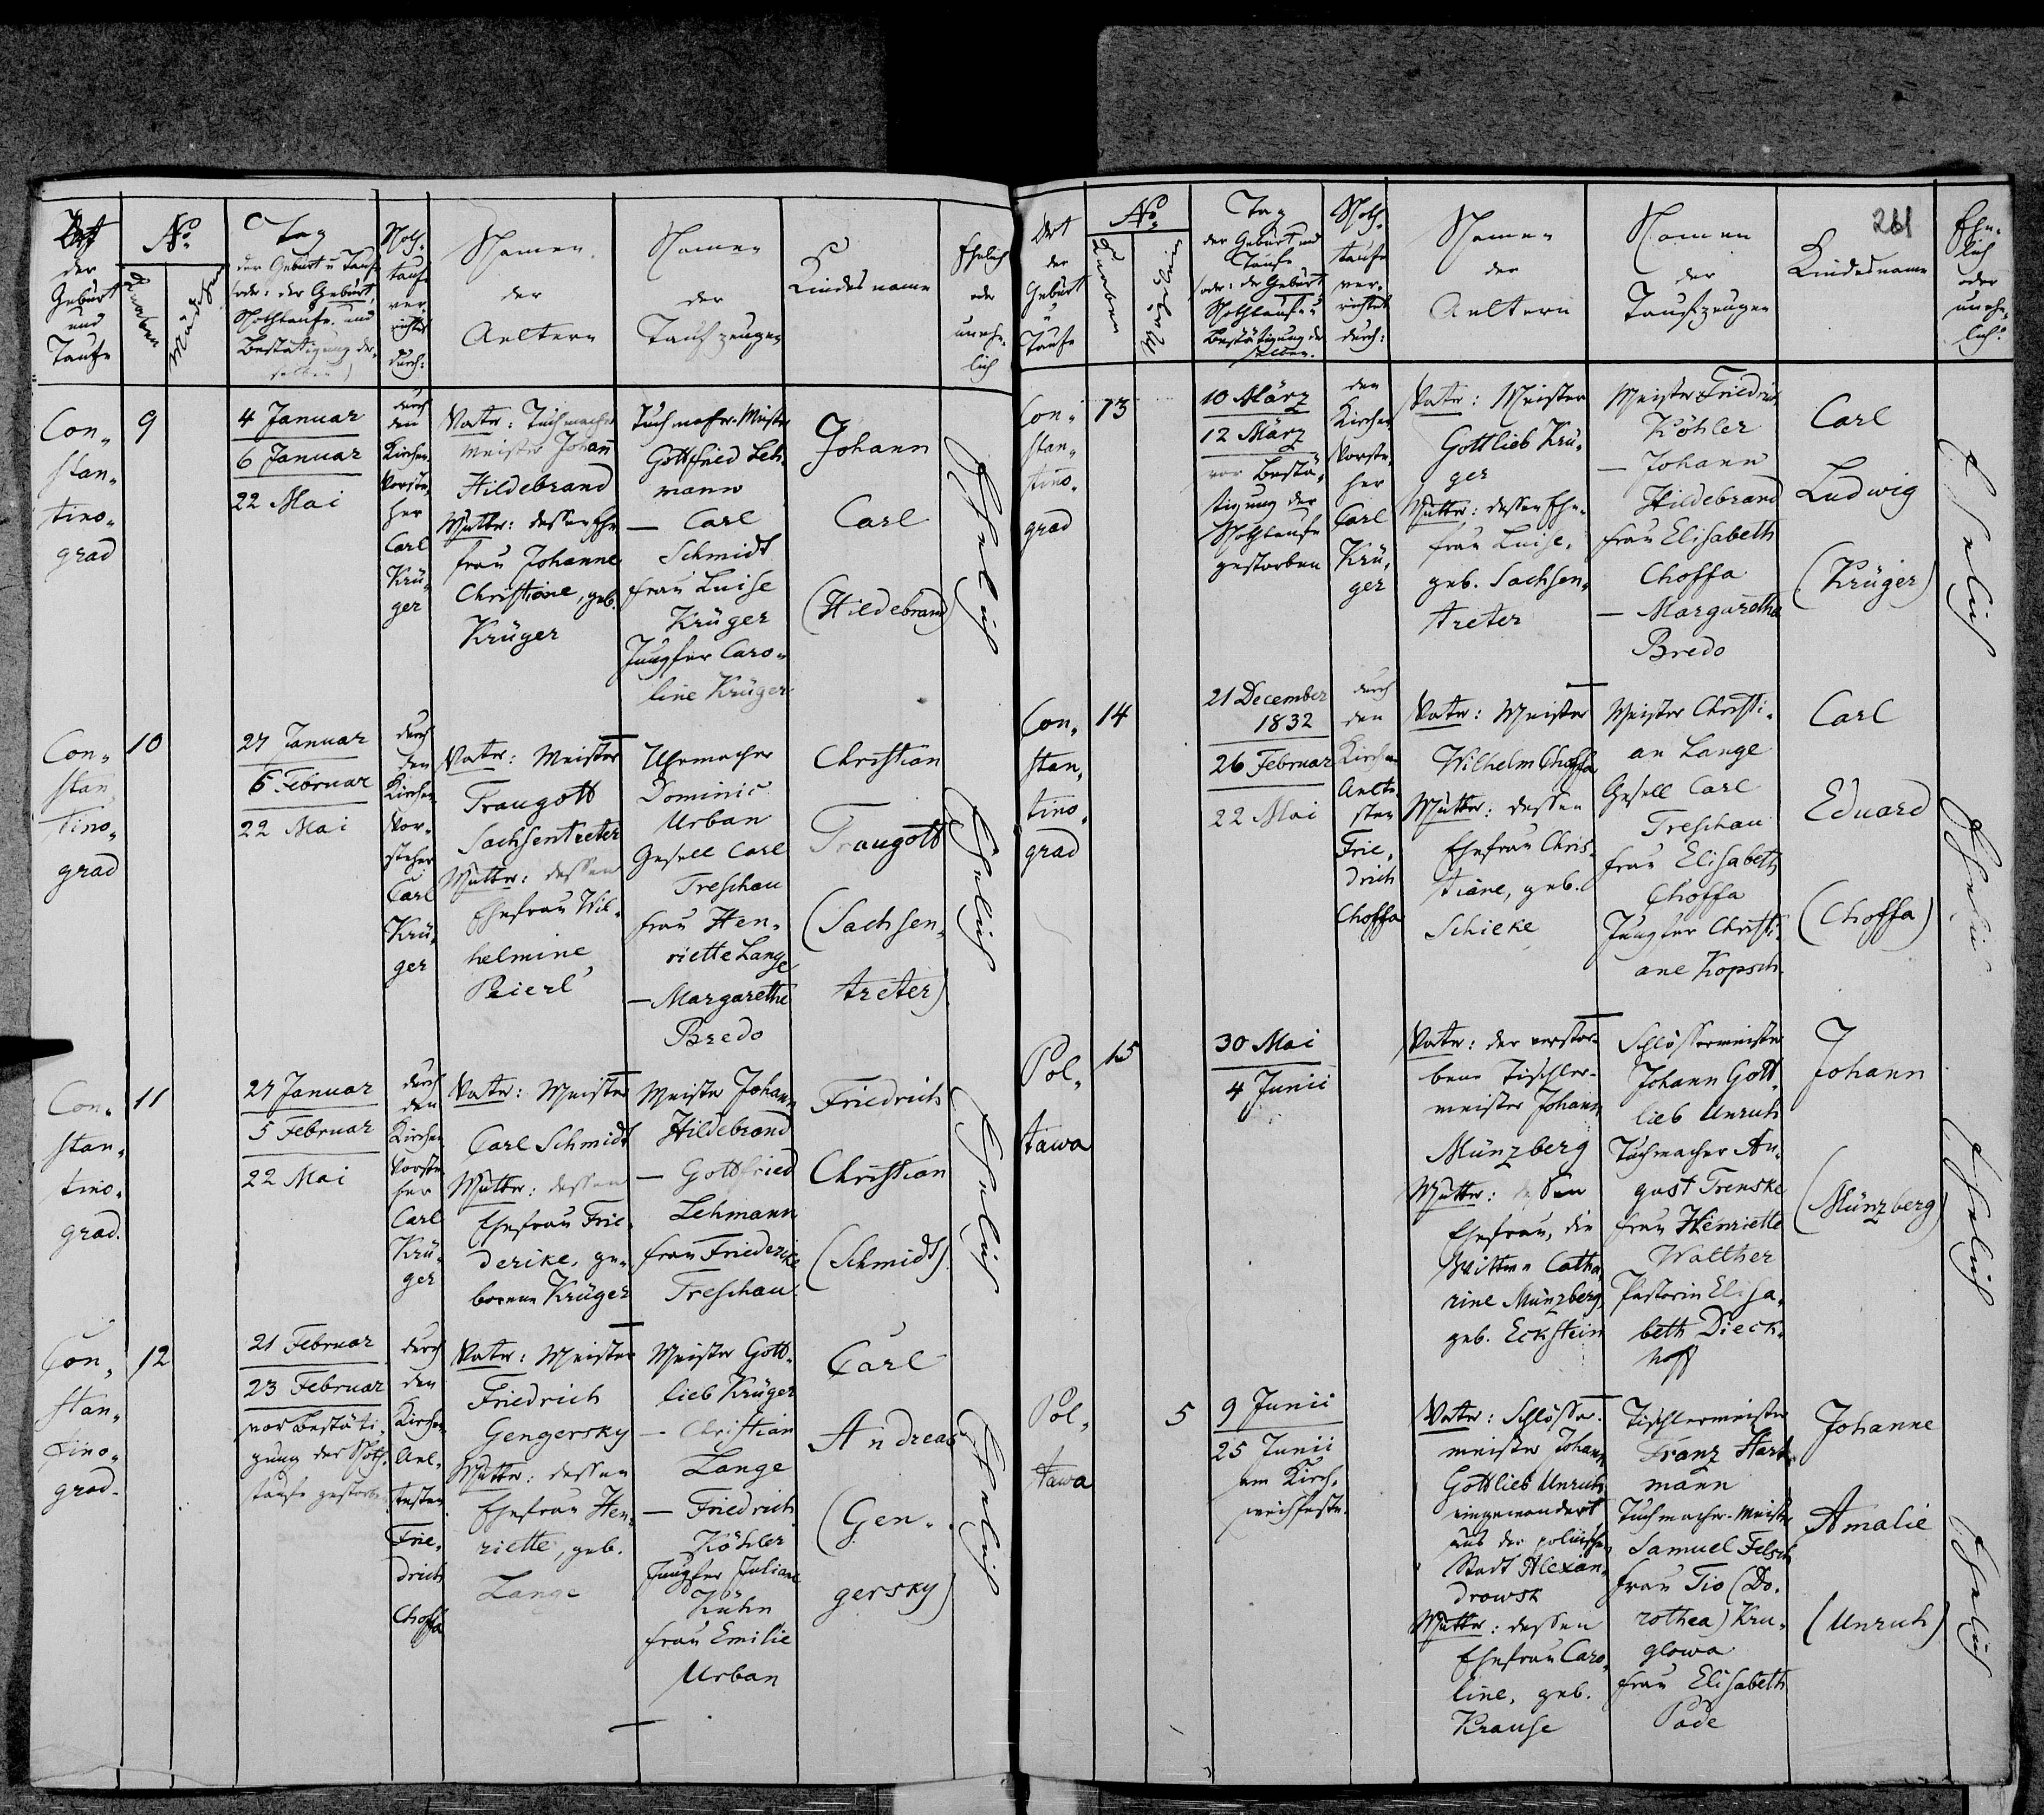 Ort
der
Geburt
und
Taufe
No.
Knaben
Mädchen
Tag
der Geburt u Taufe
(oder: der Geburt,
Nothtaufe und
Bestätigung der-
selben)
Noth-
taufe
ver-
richtet
durch:
Namen
der
Aeltern
Namen
der
Taufzeugen
Kindesname
Ehelich
oder
unehe-
lich
Con-
stan-
tino-
grad
9
4 Januar
6 Januar
22 Mai
durch
den
Kirchen-
Vorste-
her
Carl
Krü-
ger
Vater: Tuchmacher
meister Johann
Hildebrand
Mutter: dessen Ehe
frau Johanne
Christiane, geb.
Krüger
Tuchmacher-Meister
Gottfried Leh-
mann
— Carl
Schmidt
Frau Luise
Krüger
Jungfer Caro-
line Krüger
Johann
Carl
(Hildebrand)
Ehelich
Con-
stan-
tino-
grad
10
27 Januar
5 Februar
22 Mai
durch
den
Kirchen-
Vor-
steher
Carl
Krü-
ger
Vater: Meister
Traugott
Sachsentreter
Mutter: dessen
Ehefrau Wil-
helmine
Peierl
Uhrmacher
Dominic
Urban
Gesell Carl
Treschau
Frau Hen-
riette Lange
— Margarethe
Bredo
Christian
Traugott
(Sachsen-
treter)
Ehelich
Con-
stan-
tino-
grad.
11
27 Januar
5 Februar
22 Mai
durch
den
Kirchen-
Vorste
her
Carl
Krü-
ger
Vater: Meister
Carl Schmidt
Mutter: dessen
Ehefrau Frie-
derike, ge-
borene Krüger
Meister Johann
Hildebrand
— Gottfried
Lehmann
Frau Friederike
Treschau
Friedrich
Christian
(Schmidt)
Ehelich
Con-
stan-
tino-
grad-
12
21 Februar
23 Februar
vor Bestäti-
gung der Noth-
taufe gestorben
durch
den
Kirchen-
Ael-
testen
Frie-
drich
Choffa
Vater: Meister
Friedrich
Gengersky
Mutter: dessen
Ehefrau Hen-
riette, geb.
Lange
Meister Gott-
lieb Krüger
— Christian
Lange
— Friedrich
Köhler
Jungfer Juliane
Kühn
Frau Emilie
Urban
Carl
Andreas
(Gen-
gersky)
Ehelich
Ort
der
Geburt
u
Taufe
No.
Knaben
Mägdlein
Tag
der Geburt und
Taufe
(oder: der Geburt
Nothtaufe u
Bestätigung der
selben.
Noth-
taufe
ver-
richtet
durch:
Namen
der
Aeltern
Namen
der
Taufzeugen
261
Kindesname
Ehe-
lich
oder
unehe-
lich?
Con-
stan-
tino-
grad
13
10 März
12 März
vor Bestä-
tigung der
Nothtaufe
gestorben
den
Kirchen
Vorste-
her
Carl
Krü-
ger
Vater: Meister
Gottlieb Krü-
ger
Mutter: dessen Ehe-
frau Luise,
geb. Sachsen-
treter
Meister Friedrich
Köhler
— Johann
Hildebrand
Frau Elisabeth
Choffa
— Margarethe
Bredo
Carl
Ludwig
(Krüger)
Ehelich
Con-
stan-
tino-
grad
14
21 December
1832
26 Februar
22 Mai
durch
den
Kirchen
Aelte-
sten
Frie-
drich
Choffa
Vater: Meister
Wilhelm Choffa
Mutter: dessen
Ehefrau Chris-
tiane, geb.
Schieke
Meister Christi-
an Lange
Gesell Carl
Treschau
Frau Elisabeth
Choffa
Jungfer Christi-
ane Kopsch
Carl
Eduard
(Choffa)
Ehelich
Pol-
tawa
15
30 Mai
4 Junii
Vater: der verstor-
bene Tischler-
meister Johann
Münzberg
Mutter: dessen
Ehefrau, die
Wittwe Catha-
rine Münzberg,
geb. Eckstein
Schlossermeister
Johann Gott-
lieb Unruh
Tuchmacher Au-
gust Trenske
Frau Henriette
Walther
Pastorin Elisa-
beth Dieck-
hoff
Johann
(Münzberg)
Ehelich
Pol-
tawa
5
9 Junii
25 Junii
am Kirch-
weihfeste.
Vater: Schlosser-
meister Johann
Gottlieb Unruh
eingewandert
aus der polnischen
Stadt Alexan-
drowsk
Mutter: dessen
Ehefrau Caro-
line, geb.
Krause
Tischlermeister
Franz Hart-
mann
Tuchmacher-Meister
Samuel Felsch
Frau Tio (Do-
rothea) Kru-
glowa
Frau Elisabeth
Pade
Johanne
Amalie
(Unruh)
Ehelich